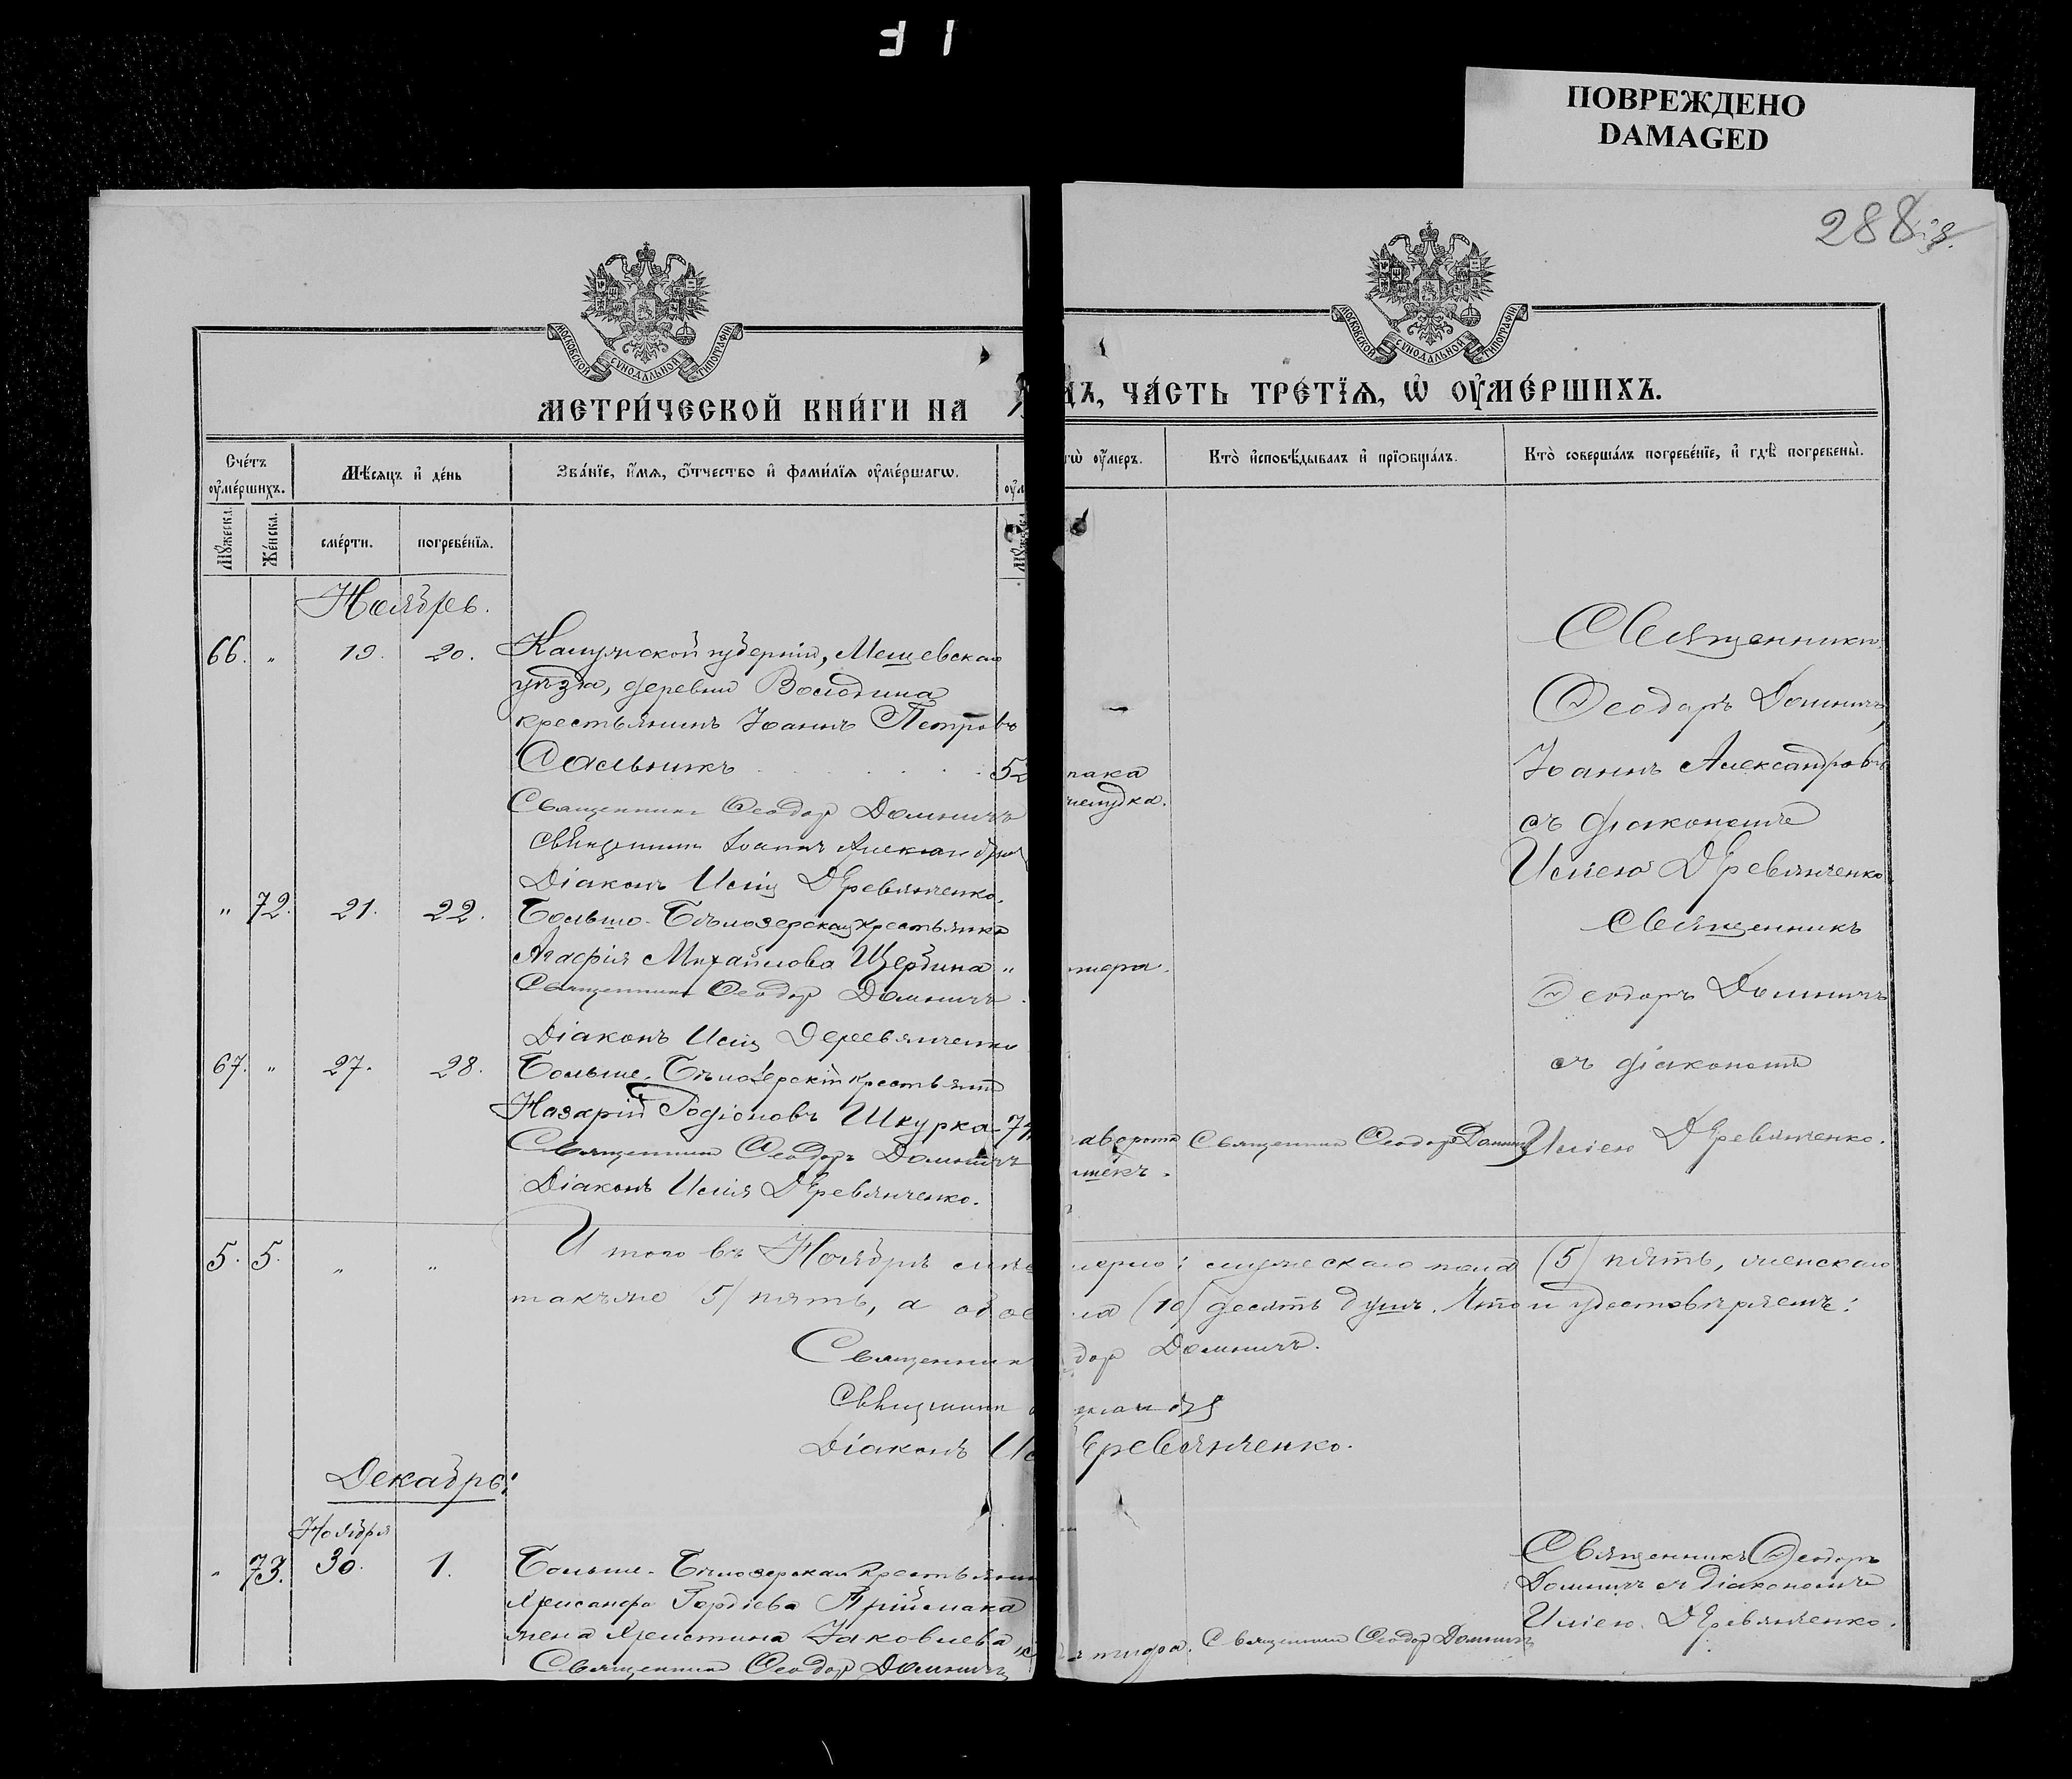 ПОВРЕЖДЕНО
DAMAGED
288
МОСКОВСКОЙ СѴНОДАЛЬНОЙ ТИПОГРАФІИ
МОСКОВСКОЙ СѴНОДАЛЬНОЙ ТИПОГРАФІИ
МЕТРИ́ЧЕСКОЙ КНИ́ГИ НА
ДЪ, ЧА́СТЬ ТРЕ́ТЇѦ, Ѡ҆ ОУ҆МЕ́РШИХЪ.
Сче́тъ оу҆ме́ршихъ.
Мѣ́сяцъ и҆ де́нь
Зва́нїе, и҆́мѧ, ѻ҆́тчество и҆ фами́лїѧ оу҆ме́ршагѡ.
гѡ̀ оу҆́меръ.
Кто̀ и҆сповѣ́дывалъ и҆ прїѡбща́лъ.
Кто̀ соверша́лъ погребе́нїе, и҆ гдѣ̀ погребены̀.
Мꙋ́жеска.
Же́нска.
сме́рти.
погребе́нїѧ.
Ноябрь.
66. " 19. 20. Калужской губерніи, Мещевскаго
уѣзда, деревни Володина
крестьянинъ Іоаннъ Петровъ
Сальникъ 52
Священникъ Ѳеодор Домничъ
Священникъ Іоаннъ Александровъ
Діаконъ Илія Деревянченко.
Священники:
Ѳеодоръ Домничъ,
Іоаннъ Александровъ
съ діакономъ
Иліею Деревянченко
" 72. 21. 22. Больше-Бѣлозерская крестьянка
Агафія Михайлова Щербина "
Священникъ Ѳеодор Домничъ
Діаконъ Илія Деревянченко
Священникъ
Ѳеодоръ Домничъ
съ діакономъ
Иліею Деревянченко.
67. " 27. 28. Больше-Бѣлозерскій крестьянинъ
Назарій Родіоновъ Шкурка
Священникъ Ѳеодоръ Домничъ
Діаконъ Илія Деревянченко.
Священникъ Ѳеодоръ Домничъ
5. 5. " " Итого въ Ноябрѣ мѣс
мерло: мужескаго пола (5) пять, женскаго
также (5) пять, а обое
ла (10) десять душъ. Что и удостовѣряемъ:
Священник
дор Домничъ.
Священник
Діаконъ Ил
еревянченко.
Декабрь:
Ноября
" 73. 30. 1. Больше-Бѣлозерская крестьян
Хрисанфа Гордіева Пріймака
жена Христина Іаковлева
Священникъ Ѳеодор Домничъ
Священникъ Ѳеодор Домничъ
Священникъ Ѳеодоръ
Домничъ съ діакономъ
Иліею Деревянченко.